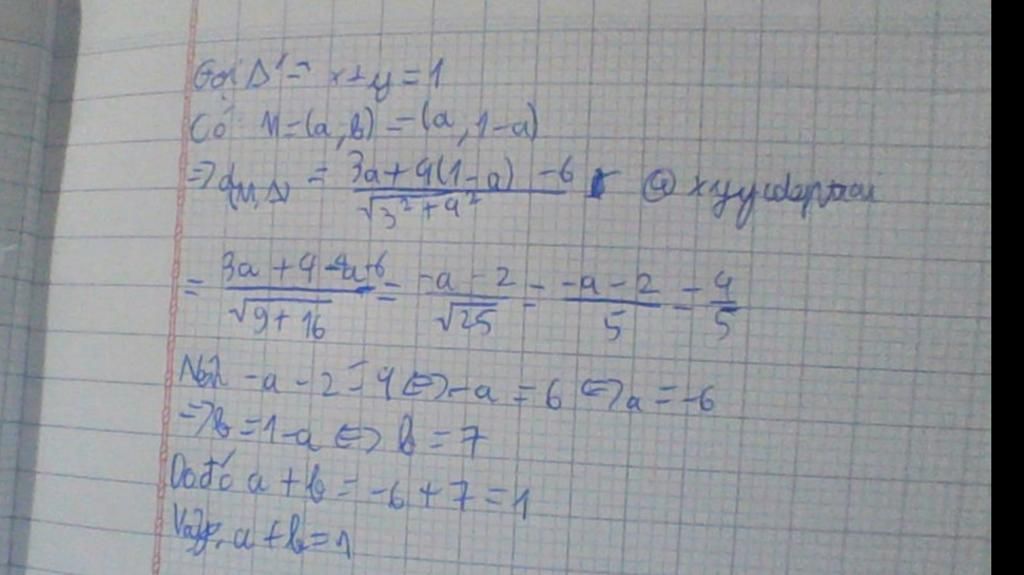 Gọi Δ' = x+y=1
Có M=(a,b)=(a,1-a)
=> d_{M,Δ} = \frac{3a+4(1-a)-6}{\sqrt{3^2+4^2}}
= \frac{3a+4-4a-6}{\sqrt{9+16}} = \frac{-a-2}{\sqrt{25}} = \frac{-a-2}{5} = \frac{4}{5}
Nên -a-2=4 <=> -a=6 <=> a=-6
=> b=1-a <=> b=7
Do đó a+b=-6+7=1
Vậy a+b=1